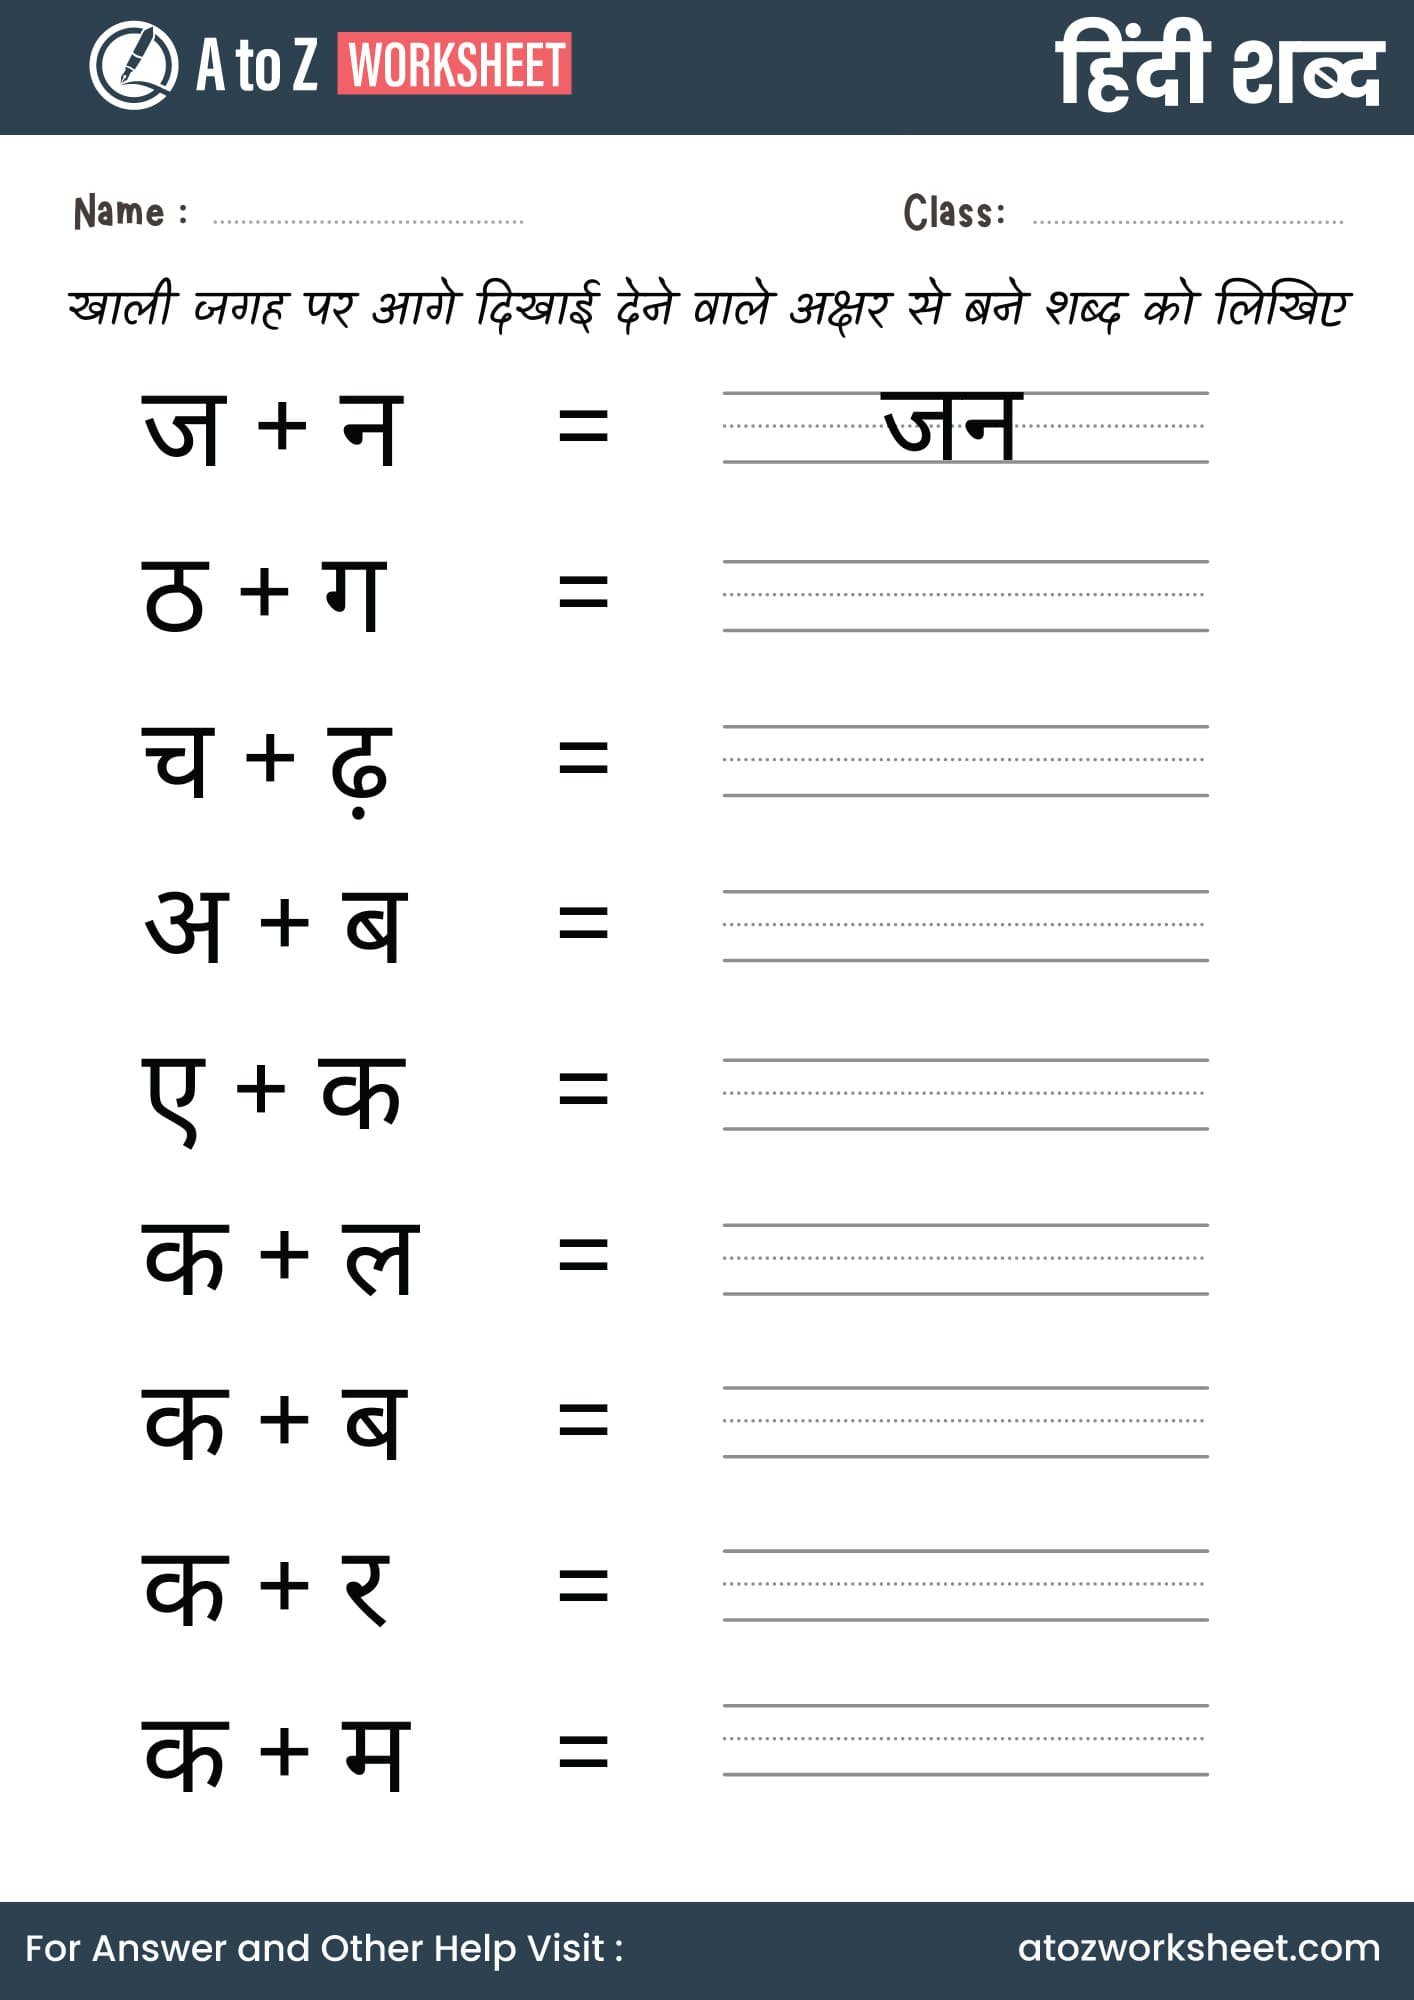 A to Z WORKSHEET हिंदी शब्द
Name : Class:
खाली जगह पर आगे दिखाई देने वाले अक्षर से बने शब्द को लिखिए
ज + न = जन
ठ + ग =
च + ढ़ =
अ + ब =
ए + क =
क + ल =
क + ब =
क + र =
क + म =
For Answer and Other Help Visit : atozworksheet.com